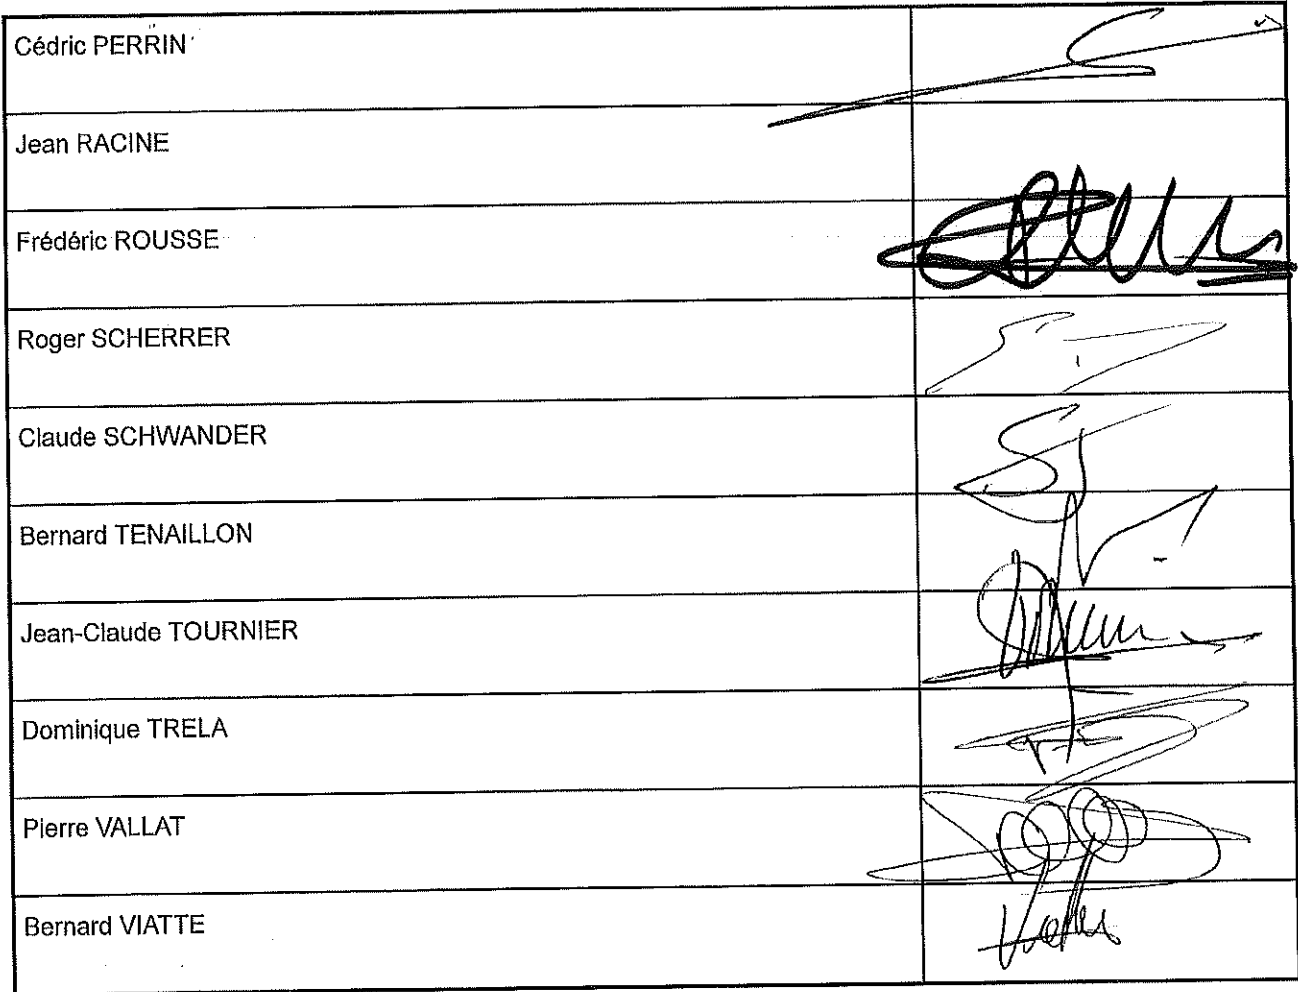 Cédric PERRIN
Jean RACINE
Frédéric ROUSSE
Roger SCHERRER
Claude SCHWANDER
Bernard TENAILLON
Jean-Claude TOURNIER
Dominique TRELA
Pierre VALLAT
Bernard VIATTE